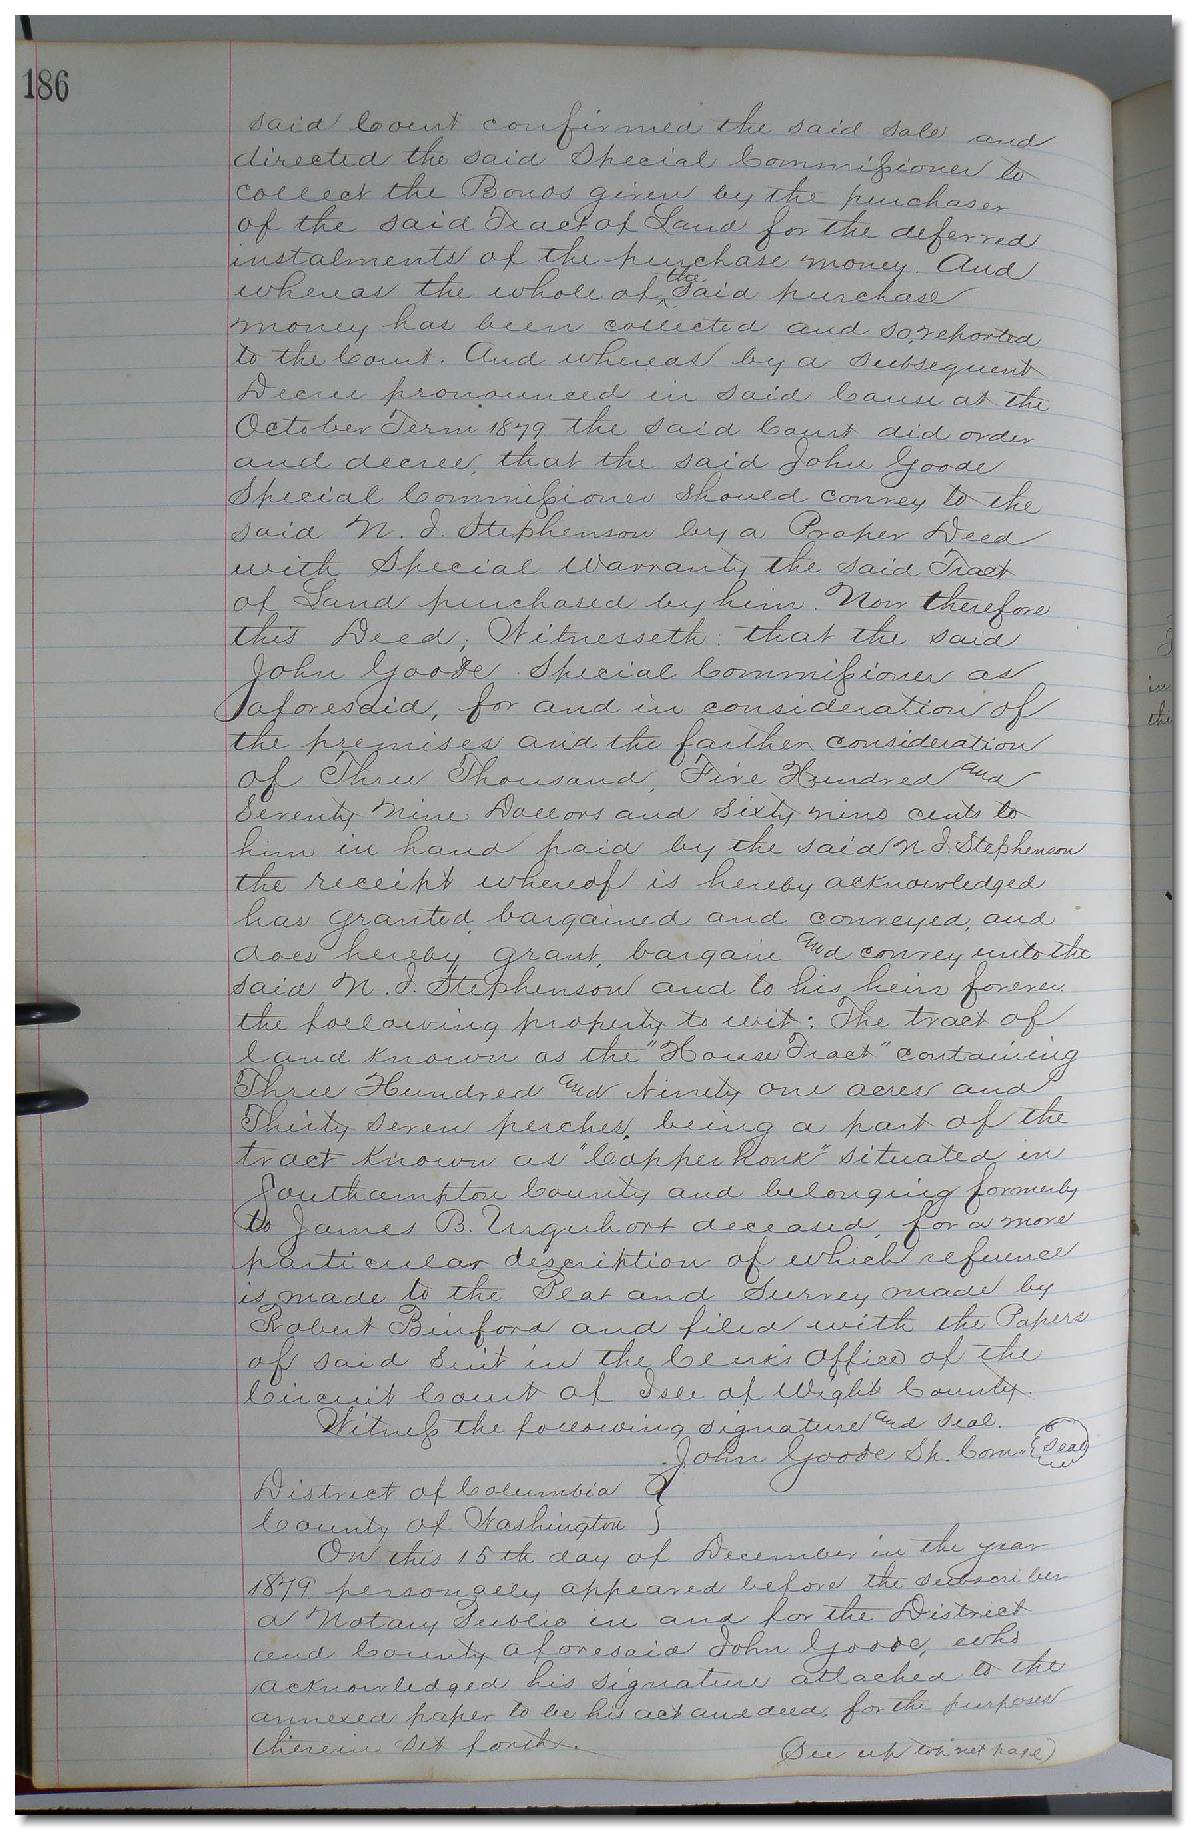 186
said Court confirmed the said sale and
directed the said Special Commissioner to
collect the Bonds given by the purchaser
of the said Tract of Land for the deferred
instalments of the purchase money. And
whereas the whole of the said purchase
money has been collected and so, reported
to the Court. And whereas by a subsequent
Decree pronounced in said Cause at the
October Term 1879 the said Court did order
and decree, that the said John Goode
Special Commissioner should convey to the
said N. J. Stephenson by a Proper Deed
with Special Warranty the said Tract
of Land purchased by him. Now therefore
this Deed; Witnesseth: that the said
John Goode Special Commissioner as
aforesaid, for and in consideration of
the premises and the farther consideration
of Three Thousand, Five Hundred and
Seventy Nine Dollars and Sixty nine cents to
him in hand paid by the said N J. Stephenson
the receipt whereof is hereby acknowledged
has granted, bargained and conveyed, and
does hereby grant, bargain and convey unto the
said N. J. Stephenson and to his heirs forever
the following property to wit: The tract of
land known as the "House Tract" containing
Three Hundred and Ninety one acres and
Thirty seven perches, being a part of the
tract known as "Copperhonk" situated in
Southampton County and belonging formerly
to James B. Urquhart deceased, for a more
particular description of which reference
is made to the Plat and Survey made by
Robert Binford and filed with the Papers
of said Suit in the Clerk's Office of the
Circuit Court of Isle of Wight County.
Witness the following signature and seal.
John Goode Sp. Com. Seal
District of Columbia }
County of Washington }
On this 15th day of December in the year
1879 personally appeared before the subscriber
a Notary Public in and for the District
and County aforesaid John Goode, who
acknowledged his signature attached to the
annexed paper to be his act and deed, for the purposes
therein set forth.
(See up top next page)